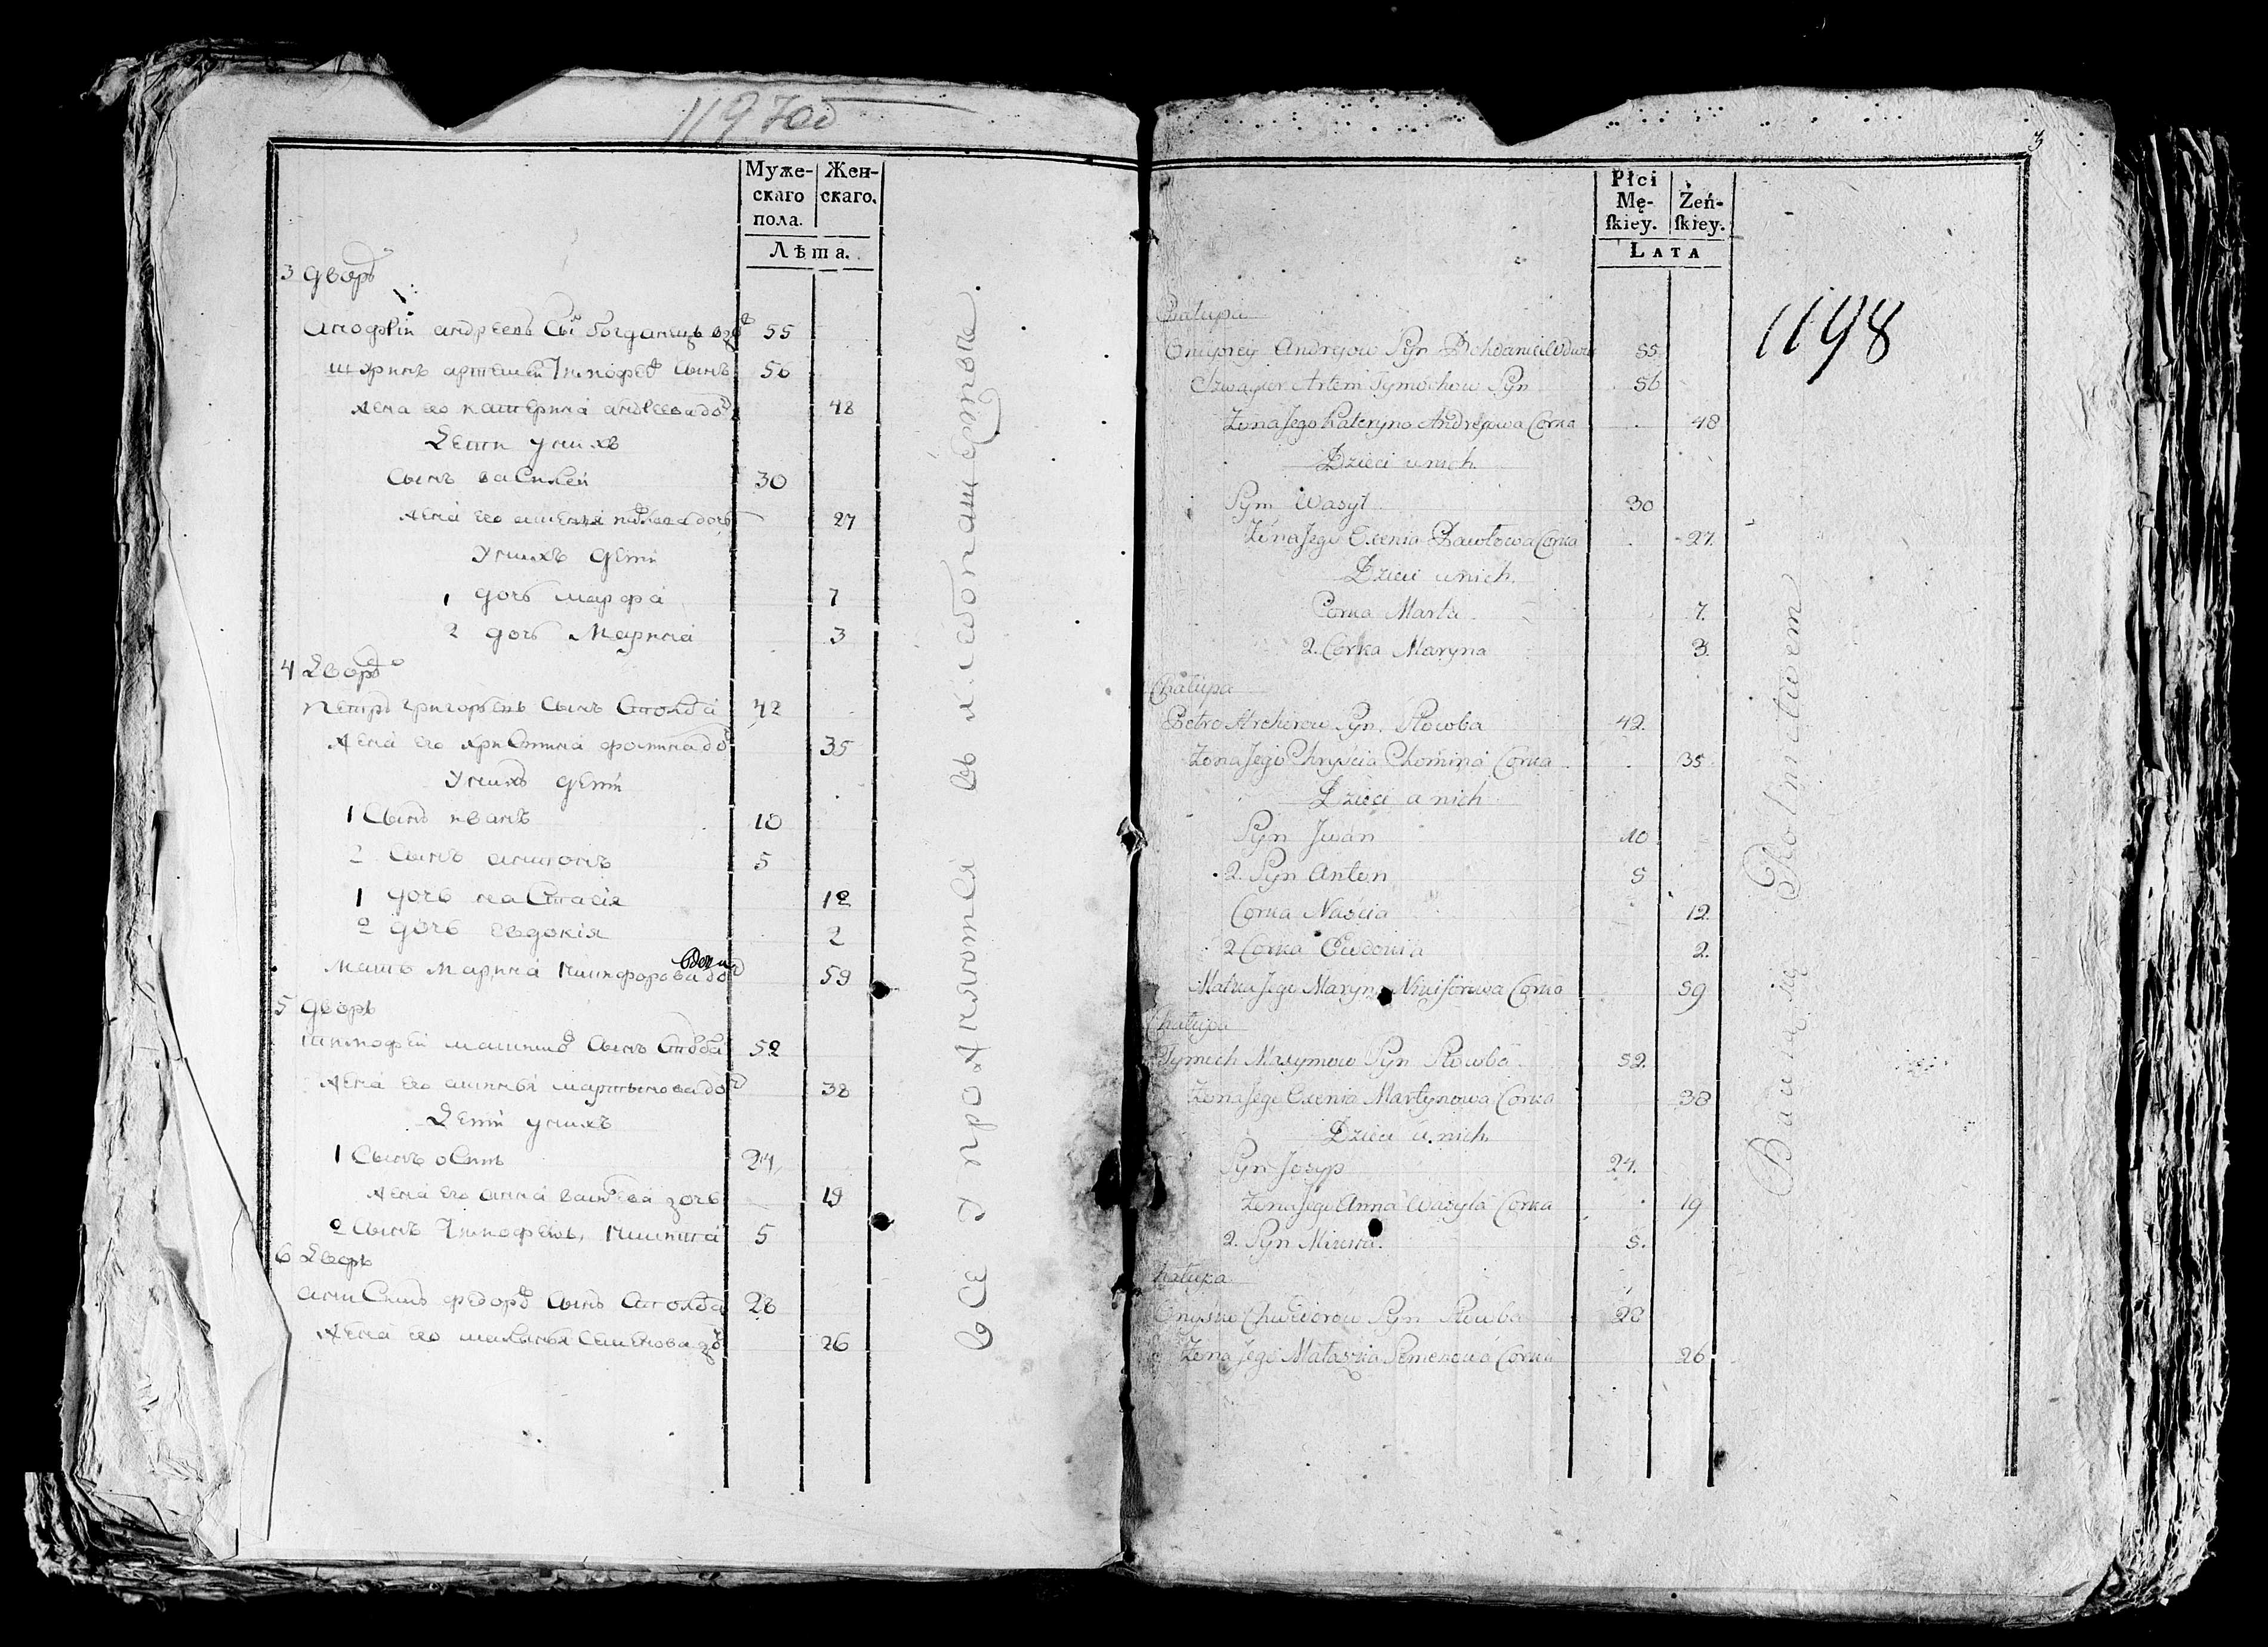 1197об
Муже-
скаго
пола.
Жен-
скаго.
Лѣта.
3 дворъ
андреевъ сы 55
шуринъ артемей тимофеевъ сынъ 56
жена его катерина андреева до 48
Дети у нихъ
сынъ василей 30
жена его павлова дочь 27
У нихъ дети
1 дочь марфа 7
2 дочь Марина 3
4 Дворъ
петръ григорьевъ сынъ 42
жена его христина фомина до 35
У нихъ дети
1 сынъ иванъ 10
2 сынъ антонъ 5
1 дочь настасія 12
2 дочь евдокія 2
мать марина никифорова до 59
5 дворъ
тимофей сынъ 52
жена его мартынова до 38
Дети у нихъ
1 сынъ осипъ 24
жена его анна дочь 19
2 сынъ тимофеевъ, никита 5
6 Дворъ
федоровъ сынъ 28
жена его семенова до 26
все упражняются въ хлебопашестве.
3
1198
Płci
Mę-
ſkiey.
Żeń-
ſkiey.
LATA
Chałupa
Andrejow Syn 55
Szwagier Artem Tymochow Syn 56
Żona Jego Kateryna Andrejowa Corka 48
Dzieci u nich
Syn Wasyl 30
Żona Jego Oxenia Pawłowa Corka 27
Dzieci u nich.
Corka Marta 7.
2. Corka Maryna 3.
Chałupa
Petro Syn 42.
Żona Jego Chryścia Chomina Corka 35
Dzieci u nich
Syn Jwan 10
2. Syn Anton 5
Corka Naścia 12.
2 Corka Ewdonia 2.
Matka Jego Maryna Corka 59
Chałupa
Tymoch Maxymow Syn 52.
Żona Jego Oxenia Martynowa Corka 38
Dzieci u nich
Syn Jozyp 24.
Żona Jego Anna Wasyla Corka 19
2. Syn Mikita. 5.
Chałupa
Syn 28
Żona Jego Małaszka Semenowa Corka 26.
Bawią się Rolnictwem